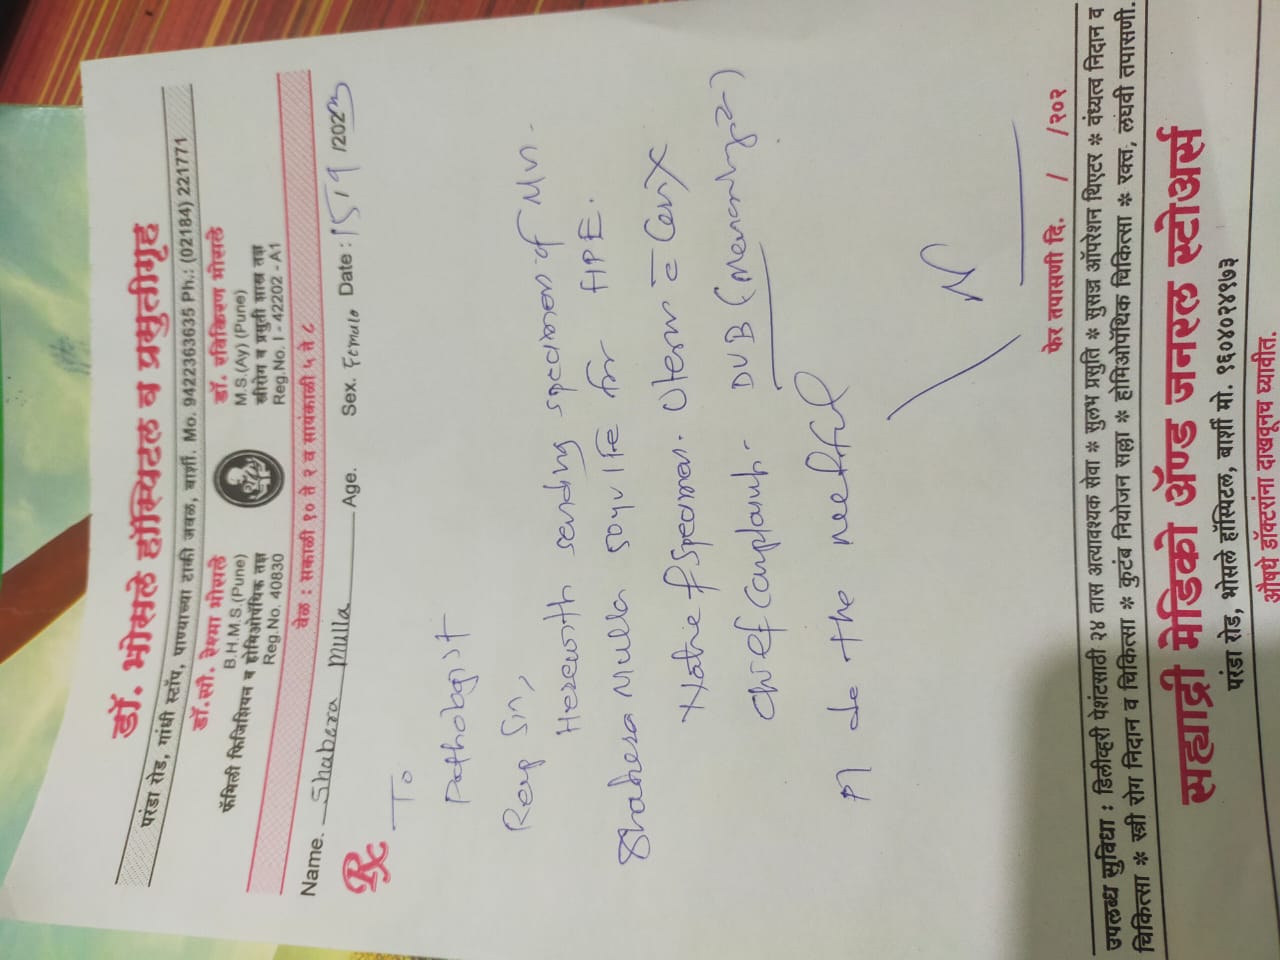 डॉ. भोसले हॉस्पिटल व प्रसुतीगृह
परंडा रोड, गांधी स्टॉप, पाण्याच्या टाकी जवळ, बार्शी. Mo. 9422363635 Ph.: (02184) 221771
डॉ.सौ. रेश्मा भोसले
B.H.M.S.(Pune)
फॅमिली फिजिशियन व होमिओपॅथिक तज्ञ
Reg.No. 40830
डॉ. रविकिरण भोसले
M.S.(Ay) (Pune)
स्त्रीरोग व प्रसुती शास्त्र तज्ञ
Reg.No. I - 42202 - A1
वेळ : सकाळी १० ते २ व सायंकाळी ५ ते ८
Name. Shahera Mulla Age. Sex. Female Date : 15/9/2023
Rx
To
Pathologist
Resp Sir,
Herewith sending specimen of Mrs.
Shahera Mulla 50yr/Fe for HPE.
Nature of specimen. Uterus c̄ Cervix
Chief Complaint - DUB (Menorrhagia)
Pl do the needful
फेर तपासणी दि. / /२०२
उपलब्ध सुविधा : डिलीव्हरी पेशंटसाठी २४ तास अत्यावश्यक सेवा * सुलभ प्रसुति * सुसज्ज ऑपरेशन थिएटर * वंध्यत्व निदान व
चिकित्सा * स्त्री रोग निदान व चिकित्सा * कुटुंब नियोजन सल्ला * होमिओपॅथिक चिकित्सा * रक्त, लघवी तपासणी.
सह्याद्री मेडिको ॲण्ड जनरल स्टोअर्स
परंडा रोड, भोसले हॉस्पिटल, बार्शी मो. ९६०४०२४९७३
औषधे डॉक्टरांना दाखवूनच घ्यावीत.